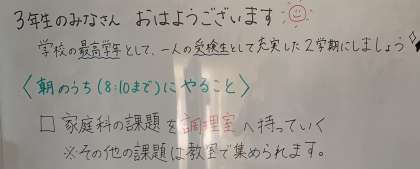 3年生のみなさん おはようございます
学校の最高学年として、一人の受検生として充実した2学期にしましょう
〈朝のうち(8:10まで)にやること〉
□ 家庭科の課題を調理室へ持っていく
※その他の課題は教室で集められます。